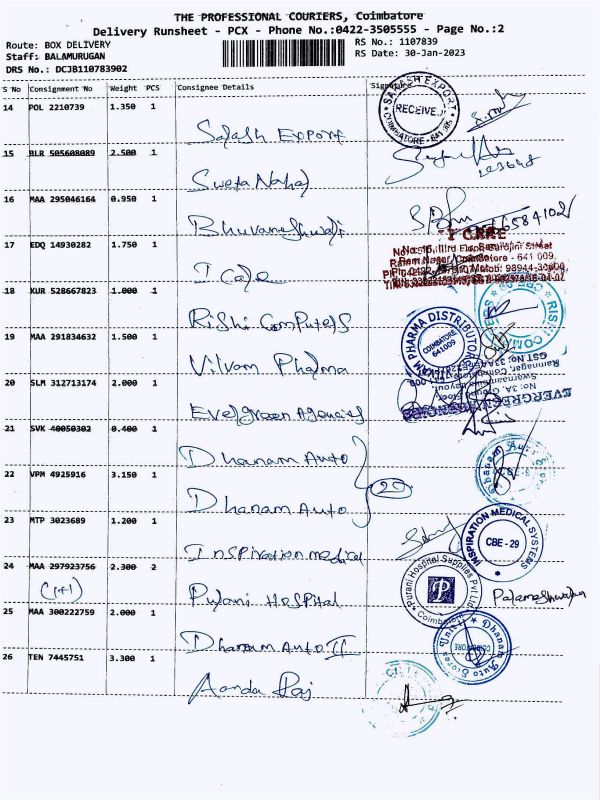 THE PROFESSIONAL COURIERS, Coimbatore
Delivery Runsheet - PCX - Phone No.:0422-3505555 - Page No.:2
Route: BOX DELIVERY
Staff: BALAMURUGAN
DRS No.: DCJB110783902
RS No.: 1107839
RS Date: 30-Jan-2023
S No Consignment No Weight PCS Consignee Details Signature
14 POL 2210739 1.350 1
Salash Export
SALASH EXPORT
RECEIVED
COIMBATORE - 641
15 BLR 505608089 2.500 1
Sweta Nahaj
16 MAA 295046164 0.950 1
Bhuvaneshwari
17 EDQ 14930282 1.750 1
I Care
I CARE
Ram Nagar, Coimbatore - 641 009.
18 KUR 528667823 1.000 1
Rishi Computers
RISHI COM
19 MAA 291834632 1.500 1
Vilvam Pharma
VILVAM PHARMA DISTRIBUTOR
COIMBATORE
641009
20 SLM 312713174 2.000 1
Evergreen Agencies
No: 3A,
GST No: 33AAE
EVERGREEN
21 SVK 40050302 0.400 1
Dhanam Auto
22 VPM 4925916 3.150 1
Dhanam Auto
23 MTP 3023689 1.200 1
Inspiration medical
INSPIRATION MEDICAL SYSTEMS
CBE - 29
24 MAA 297923756 2.300 2
(1+1)
Purani Hospital
Purani Hospital Supplies Pvt. Ltd
P
Coimbatore
25 MAA 300222759 2.000 1
Dhanam Auto II
Dhanam Auto Stores Unit
26 TEN 7445751 3.300 1
Aanda Raj